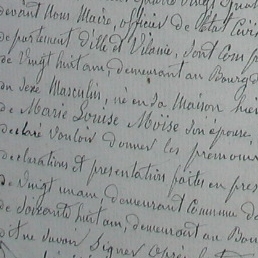 quatre Vingt
devant Nous Maire, officier de l'état Civil
département d'ille et Vilaine, sont Comp
de Vingt huit ans, demeurant au Bourg d
du sexe Masculin, né en sa Maison hier
de Marie Louise Moïse son épouse
déclaré vouloir donner les prénoms
déclarations et présentation faites en pres
de Vingt un ans, demeurant commune de
de soixante huit ans, demeurant au Bou
dit ne savoir Signer après